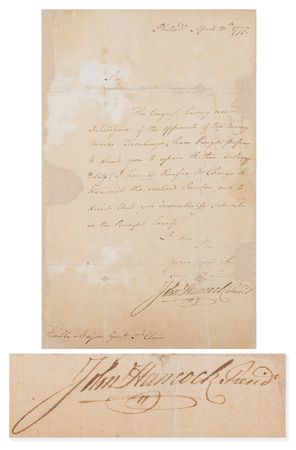 Philada. April 30th. 1777.
Sir
The Congress having received
Intelligence of the approach of the Enemy
towards Ticonderoga, have thought proper
to direct you to repair thither without
Delay. I have it therefore in Charge to
transmit the enclosed Resolve, and to
direct that you immediately set out
on the Receipt hereof.
I am
Sir
your
John Hancock Presidt.
Honble. Major Genl. St. Clair
John Hancock Presidt.